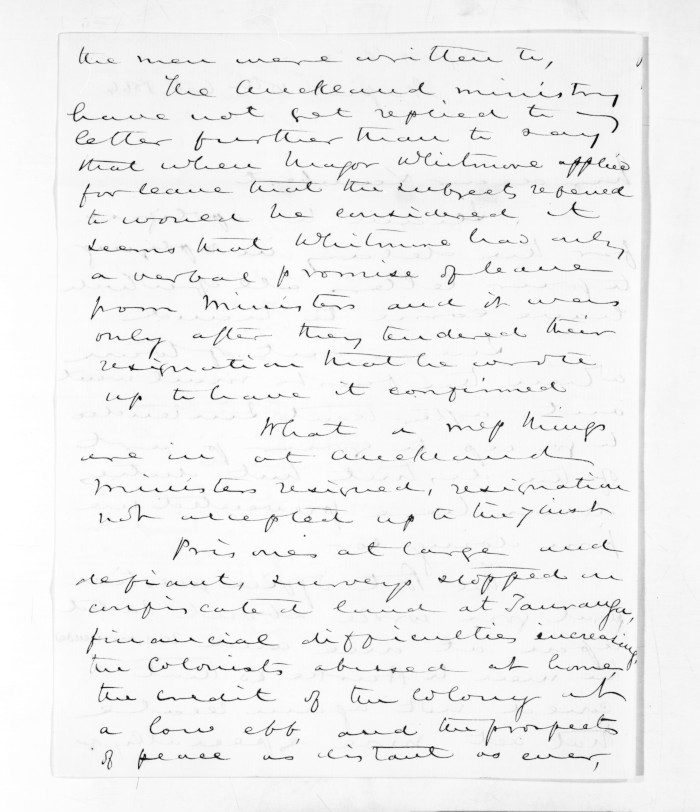 the men were written to,
The Auckland ministry
have not yet replied to my
letter further than to say
that when Major Whitmore applied
for leave that the subjects refered
to would be considered it
seems that Whitmore had only
a verbal promise of leave
from Ministers and it was
only after they tendered their
resignation that he wrote
up to have it confirmed
What a mess things
are in at Auckland
Ministers resigned, resignation
not accepted up to the 7 inst
Prisoners at large and
defiant, surveys stopped on
confiscated land at Tauranga,
financial difficulties increasing,
the Colonists abused at home,
the credit of the Colony at
a low ebb, and the prospects
of peace as distant as ever,